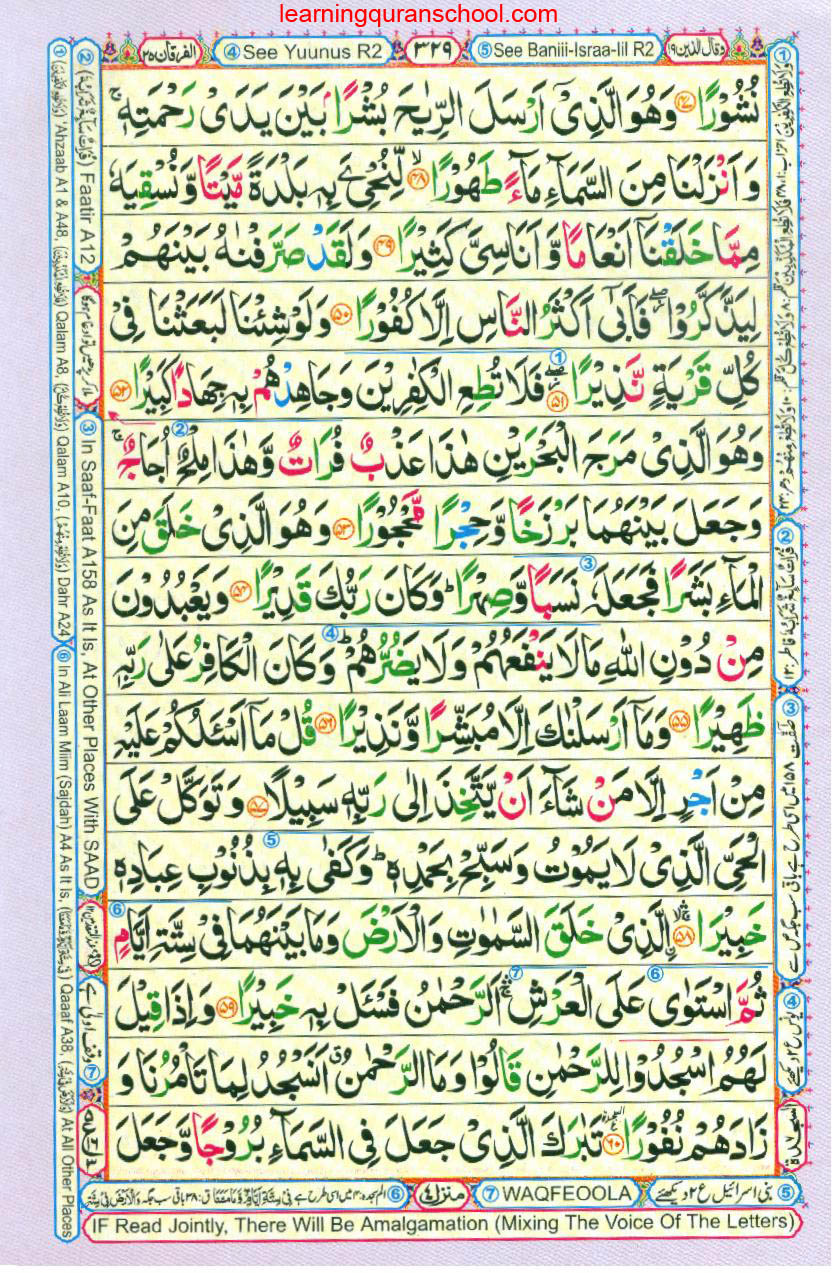 learningquranschool.com
وقال الذين ١٩
⑤ See Baniii-Israa-Iil R2
٣٢٩
④ See Yuunus R2
الفرقان ٢٥
نُشُوْرًا ﴿۴۷﴾ وَهُوَ الَّذِیْۤ اَرْسَلَ الرِّیٰحَ بُشْرًۢا بَیْنَ یَدَیْ رَحْمَتِهٖ ۚ
وَ اَنْزَلْنَا مِنَ السَّمَآءِ مَآءً طَهُوْرًا ﴿۴۸﴾ۙ لِّنُحْیَِۧ بِهٖ بَلْدَةً مَّیْتًا وَّ نُسْقِیَهٗ
مِمَّا خَلَقْنَاۤ اَنْعَامًا وَّ اَنَاسِیَّ كَثِیْرًا ﴿۴۹﴾ وَ لَقَدْ صَرَّفْنٰهُ بَیْنَهُمْ
لِیَذَّكَّرُوْا ۖ٘ فَاَبٰۤی اَكْثَرُ النَّاسِ اِلَّا كُفُوْرًا ﴿۵۰﴾ وَ لَوْ شِئْنَا لَبَعَثْنَا فِیْ
كُلِّ قَرْیَةٍ نَّذِیْرًا ﴿۵۱﴾ؗۖ ① فَلَا تُطِعِ الْكٰفِرِیْنَ وَجَاهِدْهُمْ بِهٖ جِهَادًا كَبِیْرًا ﴿۵۲﴾
وَهُوَ الَّذِیْ مَرَجَ الْبَحْرَیْنِ هٰذَا عَذْبٌ فُرَاتٌ وَّ هٰذَا مِلْحٌ ② اُجَاجٌ ۚ
وَجَعَلَ بَیْنَهُمَا بَرْزَخًا وَّ حِجْرًا مَّحْجُوْرًا ﴿۵۳﴾ وَهُوَ الَّذِیْ خَلَقَ مِنَ
الْمَآءِ بَشَرًا فَجَعَلَهٗ ③ نَسَبًا وَّصِهْرًا ؕ وَكَانَ رَبُّكَ قَدِیْرًا ﴿۵۴﴾ وَ یَعْبُدُوْنَ
مِنْ دُوْنِ اللّٰهِ مَا لَا یَنْفَعُهُمْ وَلَا یَضُرُّهُمْ ؕ ④ وَكَانَ الْكَافِرُ عَلٰی رَبِّهٖ
ظَهِیْرًا ﴿۵۵﴾ وَمَاۤ اَرْسَلْنٰكَ اِلَّا مُبَشِّرًا وَّ نَذِیْرًا ﴿۵۶﴾ قُلْ مَاۤ اَسْـَٔلُكُمْ عَلَیْهِ
مِنْ اَجْرٍ اِلَّا مَنْ شَآءَ اَنْ یَّتَّخِذَ اِلٰی رَبِّهٖ سَبِیْلًا ﴿۵۷﴾ وَ تَوَكَّلْ عَلَی
الْحَیِّ الَّذِیْ لَا یَمُوْتُ وَسَبِّحْ بِحَمْدِهٖ ؕ ⑤ وَكَفٰی بِهٖ بِذُنُوْبِ عِبَادِهٖ
خَبِیْرَا ﴿۵۸﴾ ۚۛۙ اِ۟لَّذِیْ خَلَقَ السَّمٰوٰتِ وَالْاَرْضَ وَمَا بَیْنَهُمَا فِیْ سِتَّةِ اَیَّامٍ ⑥
ثُمَّ اسْتَوٰی ⑥ عَلَی الْعَرْشِ ⑦ ۚۛ اَلرَّحْمٰنُ فَسْـَٔلْ بِهٖ خَبِیْرًا ﴿۵۹﴾ وَاِذَا قِیْلَ
لَهُمُ اسْجُدُوْا لِلرَّحْمٰنِ قَالُوْا وَمَا الرَّحْمٰنُ ۗ اَنَسْجُدُ لِمَا تَاْمُرُنَا وَ
زَادَهُمْ نُفُوْرًا ﴿۶۰﴾ تَبٰرَكَ الَّذِیْ جَعَلَ فِی السَّمَآءِ بُرُوْجًا وَّجَعَلَ
② Faatir A12
③ In Saaf-Faat A158 As It Is, At Other Places With SAAD
① 'Ahzaab A1 & A48, Qalam A8, Qalam A10, Dahr A24
⑥ In Ali Laam Miim (Sajdah) A4 As It Is, Qaaaf A38, At All Other Places
⑤ بنی اسرائیل ع ۲ دیکھئے
⑦ WAQFEOOLA
منزل ٤
⑥
IF Read Jointly, There Will Be Amalgamation (Mixing The Voice Of The Letters)